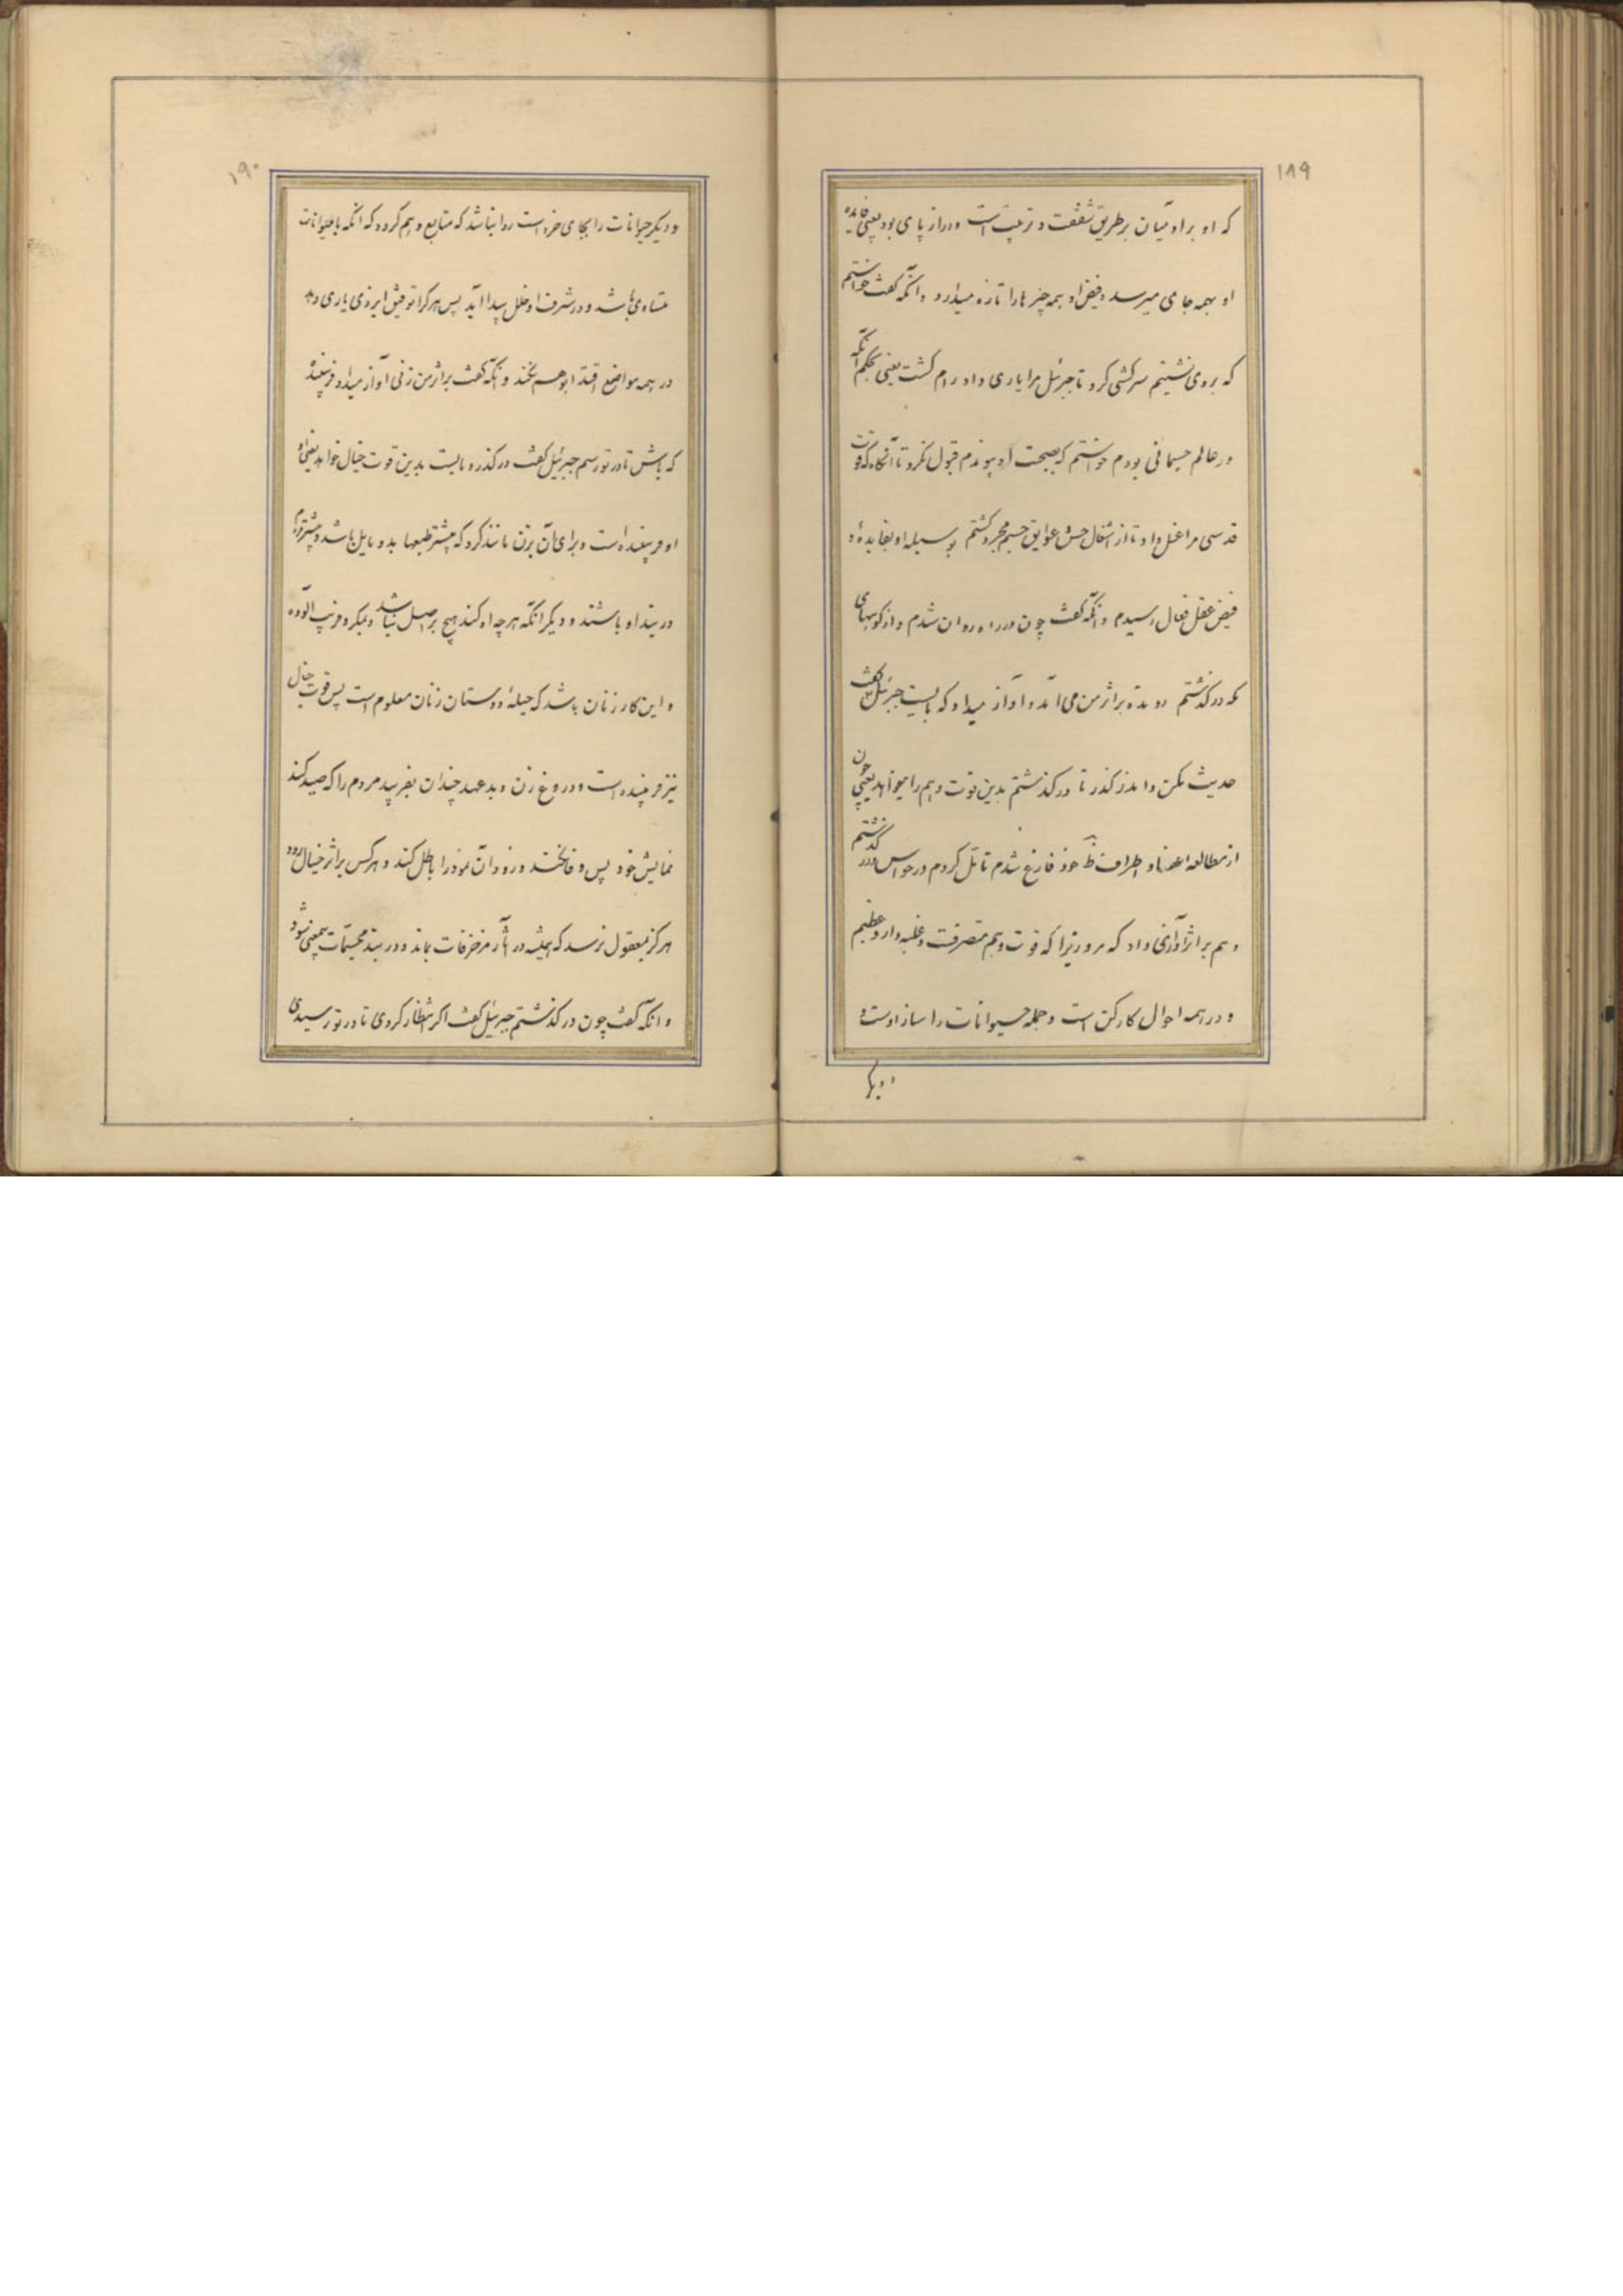 ۱۸۹
که او بر آدمیان بر طریق شفقت و تربیت است و دراز پای بود یعنی فایده
او بهمه جای میرسد و فیض او همه چیزها را تازه میدارد و آنکه گفت خواستم
که بروی نشینم سرکشی کرد تا جبرئیل مرا یاری داد رام گشت یعنی بحکم آنکه
در عالم جسمانی بودم خواستم که بصحبت او پیوندم قبول نکرد تا آنگاه که قوت
قدسی مرا غسل داد تا از اشغال جهل و عوایق جسم مجرد گشتم بوسیله او بفایده و
فیض عقل فعال رسیدم و آنکه گفت چون در راه روان شدم و از کوههای
مکه در گذشتم رونده بر اثر من می آمد و آواز میداد که بایست جبرئیل گفت
حدیث مکن و اندر گذر تا در گذشتم بدین قوت وهم را میخواهد یعنی چون
از مطالعه اعضا و اطراف ظاهر خود فارغ شدم تأمل کردم در حواس و در گذشتم
وهم بر اثر آواز می داد که مرو زیرا که قوت وهم متصرفت و غلبه دارد عظیم
و در همه احوال کارکن است و جمله حیوانات را ساز اوست و
و دیگر
۱۹۰
و دیگر حیوانات را بجای خرد است روا نباشد که متابع وهم گردد که آنگه با حیوانات
متساوی باشد و در شرف او خلل پیدا آید پس هر کرا توفیق ایزدی یاری دهد
در همه مواضع اقتدا بوهم نکند و آنکه گفت بر اثر من زنی آواز میداد فریبنده
که باش تا در تو رسم جبرئیل گفت در گذر و مایست بدین قوت خیال خواهد یعنی او
او فریبنده است و برای آن بزن مانند کرد که بیشتر طبعها بدو مایل باشد و بیشتر مردم
در بند او باشند و دیگر آنکه هر چه او کند هیچ بر اصل نباشد و بمکر و فریب آلوده
و این کار زنان باشد که حیله و دستان زنان معلوم است پس قوت خیال
نیز فریبنده است و دروغ زن و بد عهد چندان بفریبد مردم را که صید کند
نمایش خود پس وفا نکند و زود آن نمود را باطل کند و هر کس بر اثر خیال رود
هرگز بمعقول نرسد که همیشه در آثار مزخرفات بماند و در بند مجسمات بیمعنی شود
و آنکه گفت چون در گذشتم جبرئیل گفت اگر انتظار کردی تا در تو رسیدی